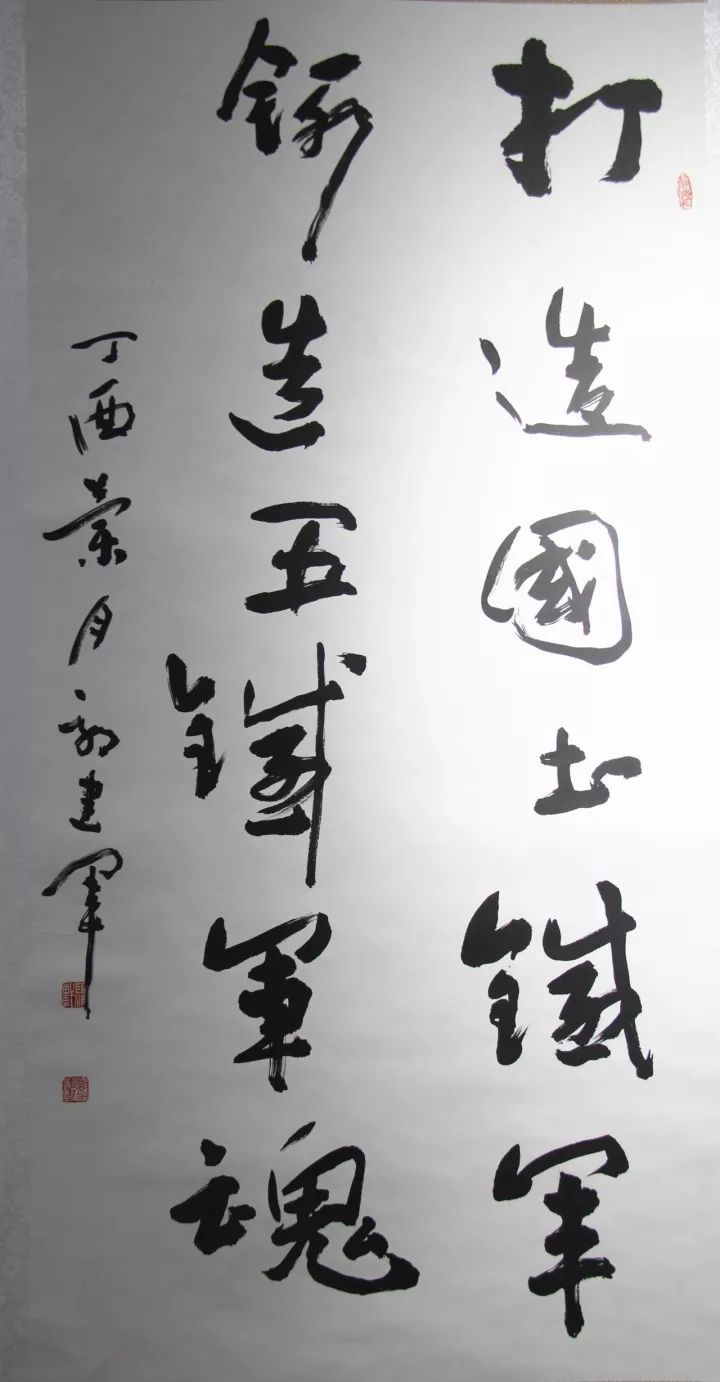 打造國土鐵軍
鑄造五鐵軍魂
丁酉月建軍